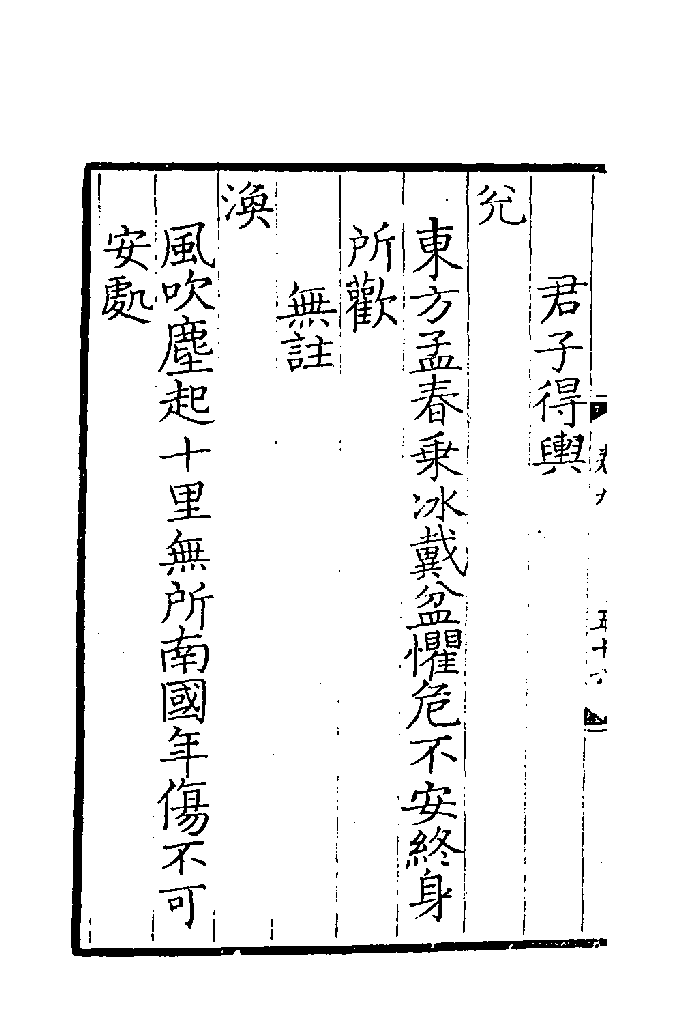 君子得輿
兊
東方孟春乗冰戴盆懼危不安終身
所歡
無註
渙
風吹塵起十里無所南國年傷不可
安處